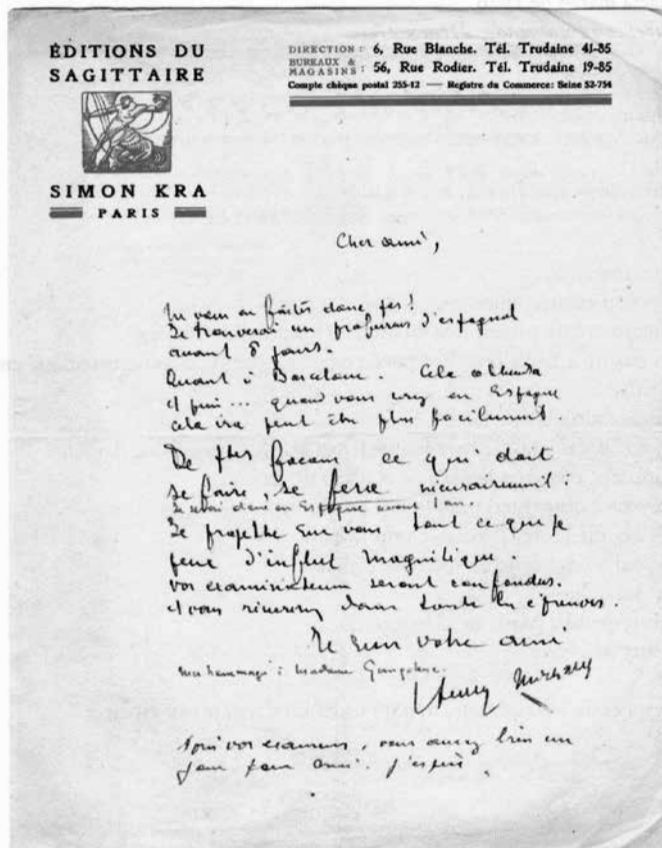 ÉDITIONS DU
SAGITTAIRE
SIMON KRA
PARIS
DIRECTION : 6, Rue Blanche. Tél. Trudaine 41-85
BUREAUX & MAGASINS : 56, Rue Rodier. Tél. Trudaine 19-85
Compte chèque postal 255-12 — Registre du Commerce: Seine 52-754
Cher ami,
donc pas!
Je trouverai un d'espagnol
avant 8 jours.
Quant à Barcelone. Cela attendra
et puis... quand vous serez en Espagne
cela ira peut être plus facilement
De façon ce qui doit
se faire, se fera nécessairement
Je serai donc en Espagne avant
Je projette sur vous tout ce que je
peux d'influx magnétique.
vos examinateurs seront confondus.
et vous dans toutes les épreuves.
Je suis votre ami
mes hommages à madame
Henry Michaux
vos examens, vous aurez bien un
jour pour ami. j'espère.